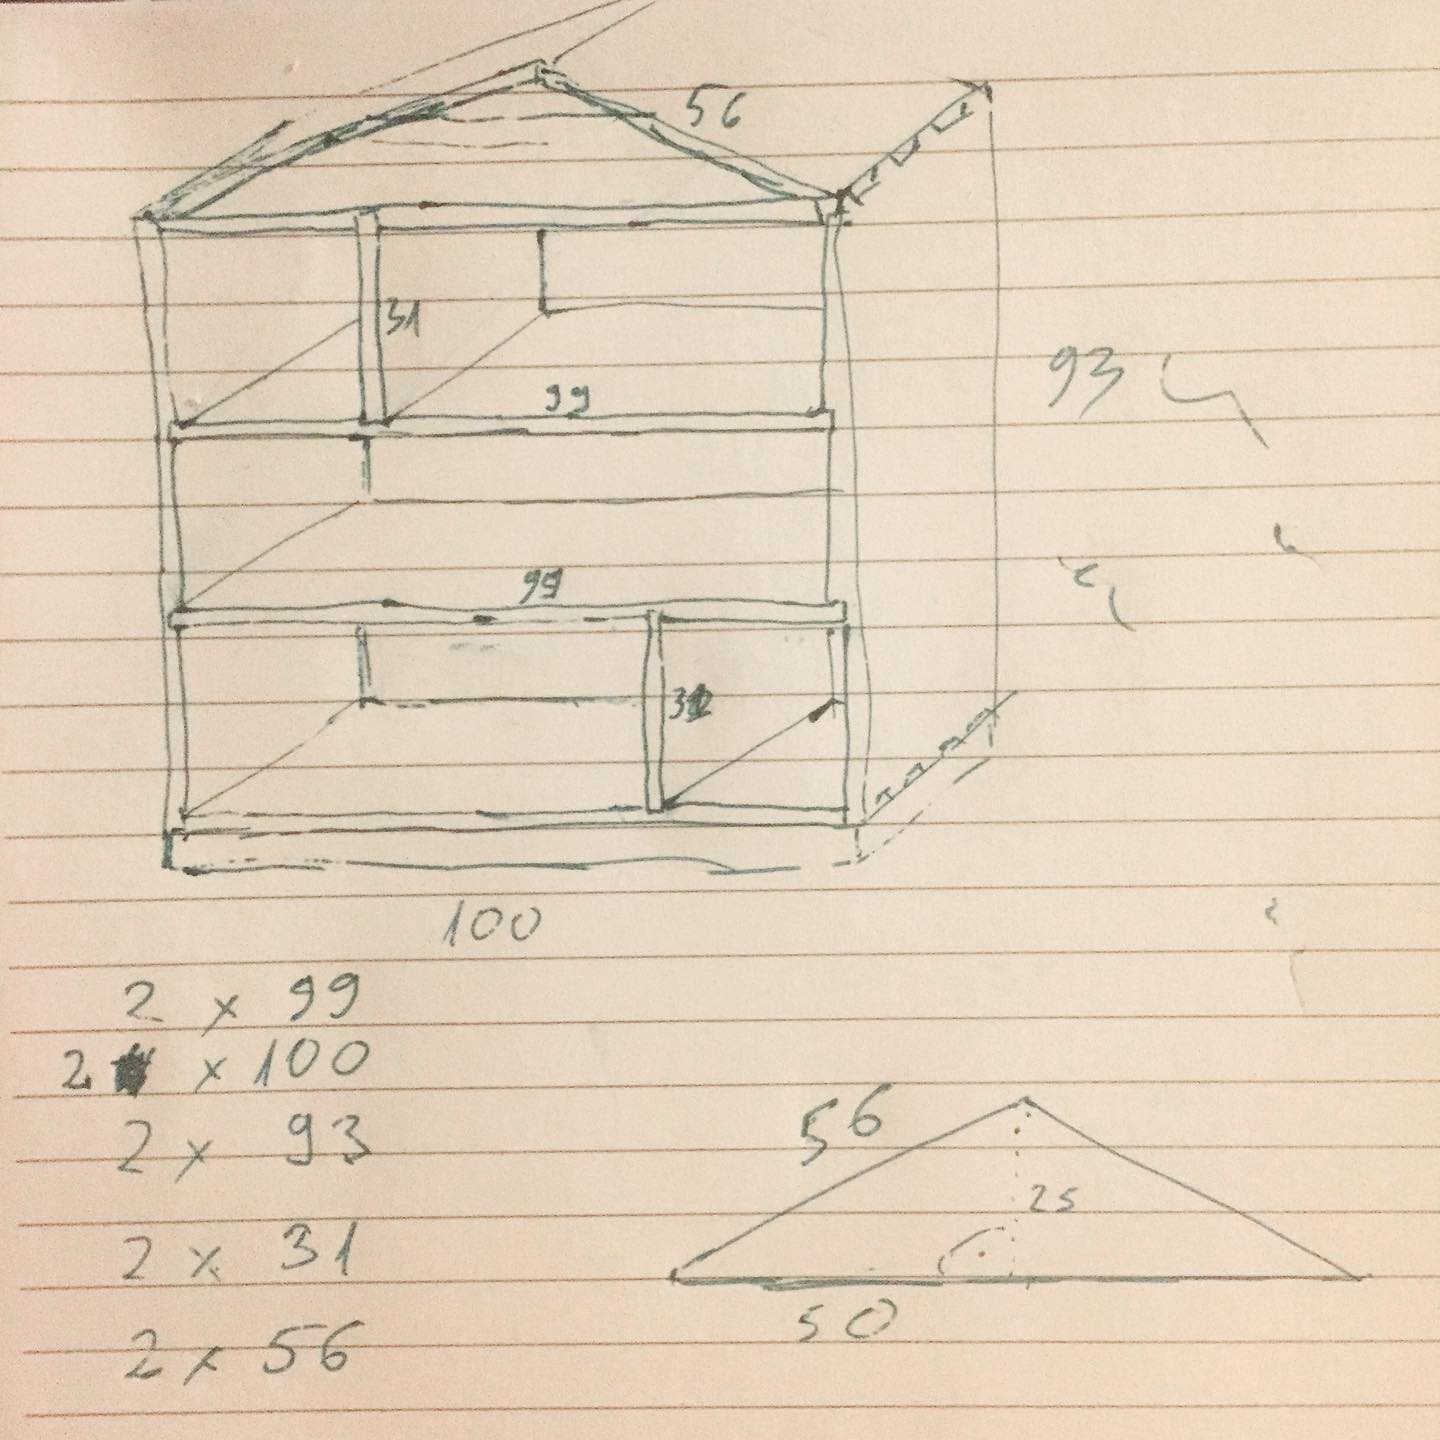 56
31
93
99
99
100
2 x 99
2 x 100
2 x 93
2 x 31
2 x 56
56
25
50